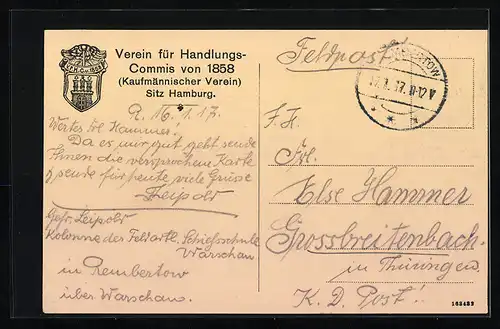 Verein für Handlungs-
Commis von 1858
(Kaufmännischer Verein)
Sitz Hamburg.
R. 16. 1. 17.
Wertes Frl. Hammer!
Da es mir gut geht sende
Ihnen die versprochene Karte
& sende für heute viele Grüsse
Leipold
Gefr. Leipold
Kolonne der Feldartl. Schießschule
Warschau
in Rembertow
über Warschau.
Feldpost
17.1.17. 11-12 V
F. H.
Frl.
Else Hammer
Grossbreitenbach
in Thüringen
K. D. Post!